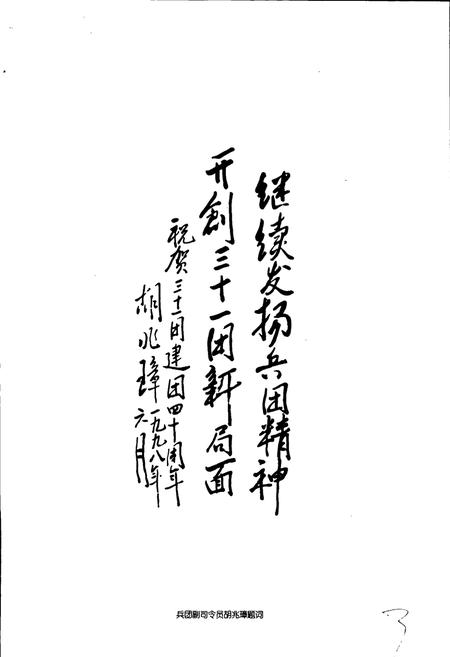 继续发扬兵团精神
开创三十一团新局面
祝贺三十一团建团四十周年
胡兆璋 一九九八年
六月
兵团副司令员胡兆璋题词
3